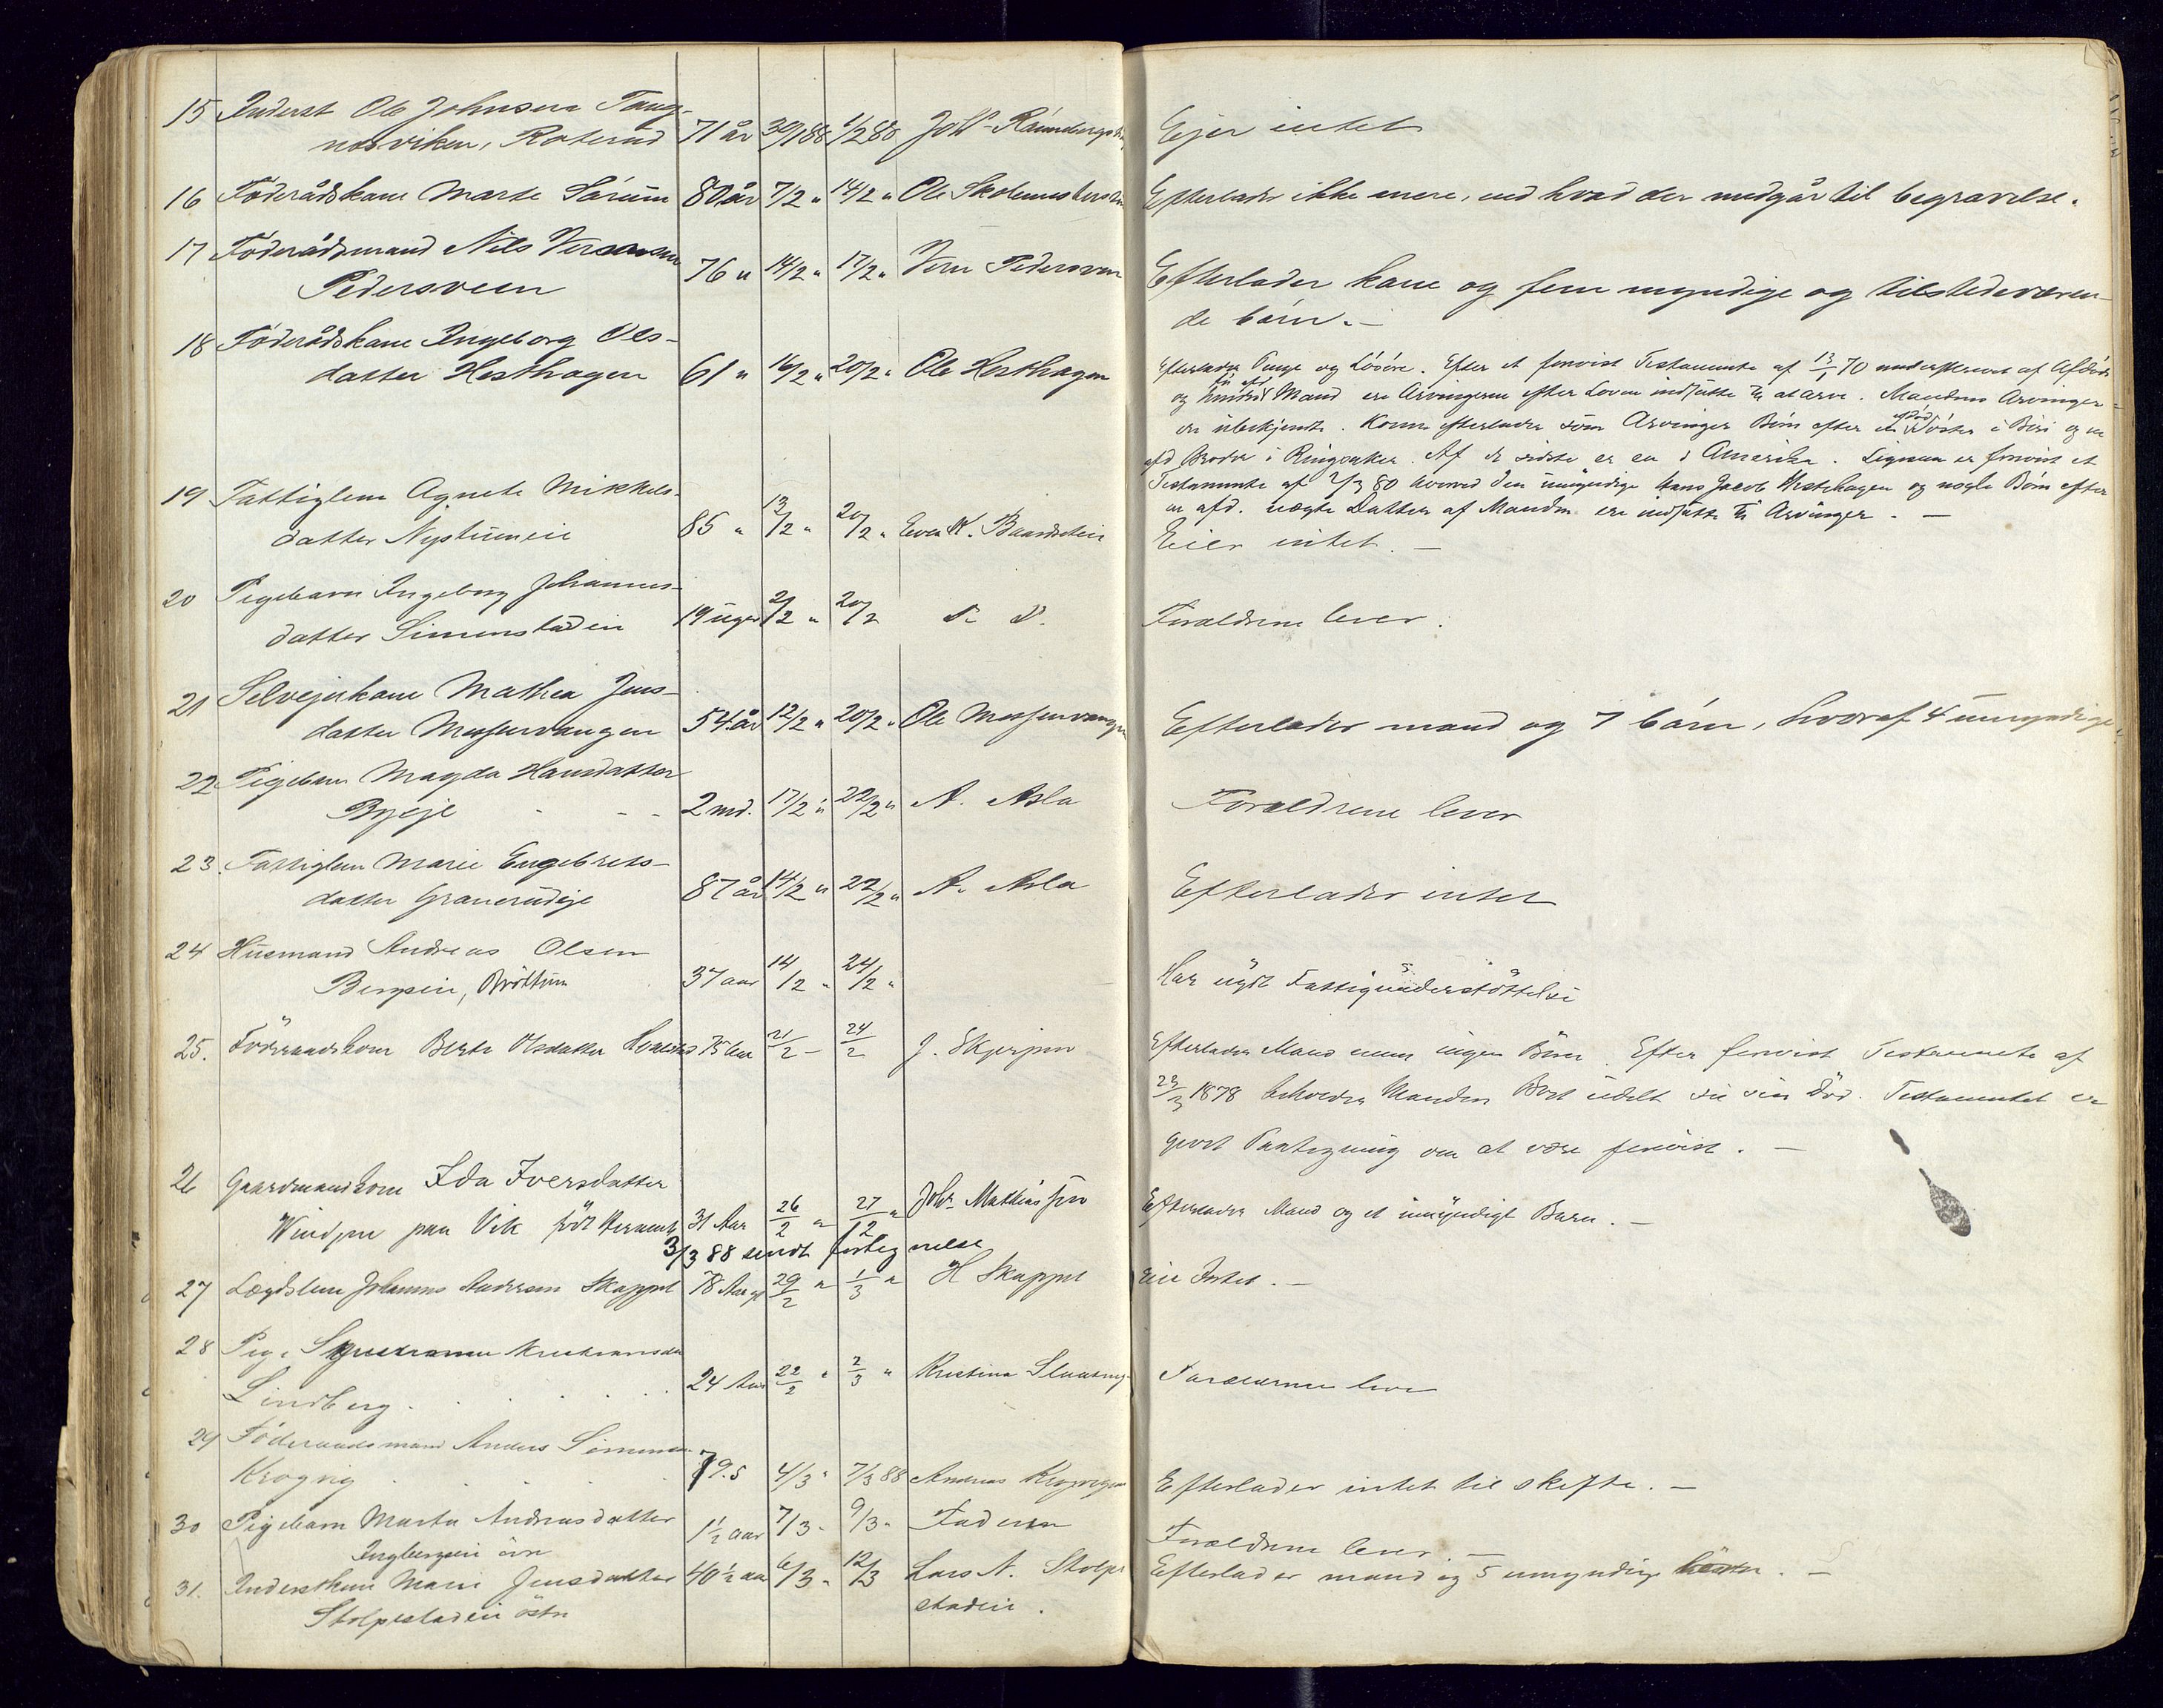 15 Inderst Ole Johnsen Tang-
nesviken, Roterud 71 år 30/1 88 1/2 88 Joh.
Ejer intet
16 Föderådskone Marte Sörum 80 år 7/2 " 14/2 " Ole
Efterlader ikke mere, end hvad der medgår til begravelse.
17 Föderådsmand Nils
Pedersveen 76 " 14/2 " 17/2 " Pedersveen
Efterlader kone og fem myndige og tilstedeværen-
de börn. -
18 Föderådskone Ingeborg Ols-
datter Hesthagen 61 " 16/2 " 20/2 " Ole Hesthagen
Efterlader Penge og Lösöre. Efter et forevist Testamente af 13/1 70 underskrevet af Afdöde
og Mand ere Arvingerne efter Loven indsatte til at arve. Mandens Arvinger
er ubekjendte. Konen efterlader som Arvinger Börn efter en afdöd Söster i Biri og en
afd Broder i Ringsaker. Af de sidste er en i Amerika. Ligesaa er forevist et
Testamente af 2/3 80 hvorved den umyndige Hans Jacob Hestehagen og nogle Börn efter
en afd. uægte Datter af Manden ere indsatte til Arvinger. -
19 Fattiglem Agnete Mikkels-
datter Nystuen 85 " 13/2 " 20/2 " Even K.
Eier intet. -
20 Pigebarn Ingeborg Johannes-
datter Simenstadei 19 uger 2/2 " 20/2
Forældrene lever.
21 Selvejerkone Mathea Jens-
datter Messenvangen 54 år 12/2 " 20/2 " Ole Messenvangen
Efterlader mand og 7 börn, hvoraf 4 umyndige.
22 Pigebarn Magda Hansdatter
Byeje - - - 2 md. 17/2 " 22/2 " A. Asla
Forældrene lever
23. Fattiglem Marie Engebrets-
datter Granerudeje 87 år 14/2 " 22/2 " A. Asla
Efterlader intet
24 Husmand Andreas Olsen
Bergsei, Bröttum 37 aar 14/2 " 24/2 "
Har nydt Fattigunderstöttelse
25. Föderaadskone Berte Olsdatter 75 Aar 21/2 - 24/2 J.
Efterlader Mand men ingen Börn. Efter forevist Testamente af
23/3 1878 beholder Manden Boet udelt til sin Död. Testamentet er
givet Paategning om at være forevist. -
26 Gaardmandskone Ida Iversdatter
Windju paa Vik föd 31 Aar 26/2 " 27/2 " Johs. Mathiassen
3/3 88 sendt fortegnelse
Efterlader Mand og et umyndigt Barn. -
27 Lægdslem Johannes Andersen Skappel 78 Aar gl 29/2 " 1/3 " H Skappel
Eier Intet. -
28 Pige
Lindberg . . . . 24 Aar 22/2 " 2/3 " Kristina
Forældrene lever
29 Föderaadsmand Anders Simensen
Krogvig . . . 79.5 4/3 " 7/3 88 Andreas
Efterlader intet til skifte. -
30 Pigebarn Marta Andreasdatter
Ingbergsei övre 1 1/2 aar 7/3 - 9/3 - Faderen
Forældrene lever. -
31. Inderstkone Marie Jensdatter 40 1/2 aa 6/3 - 12/3 Lars N. Stolpe
Stolpestadeie östre stadeie.
Efterlader mand og 5 umyndige börn. -